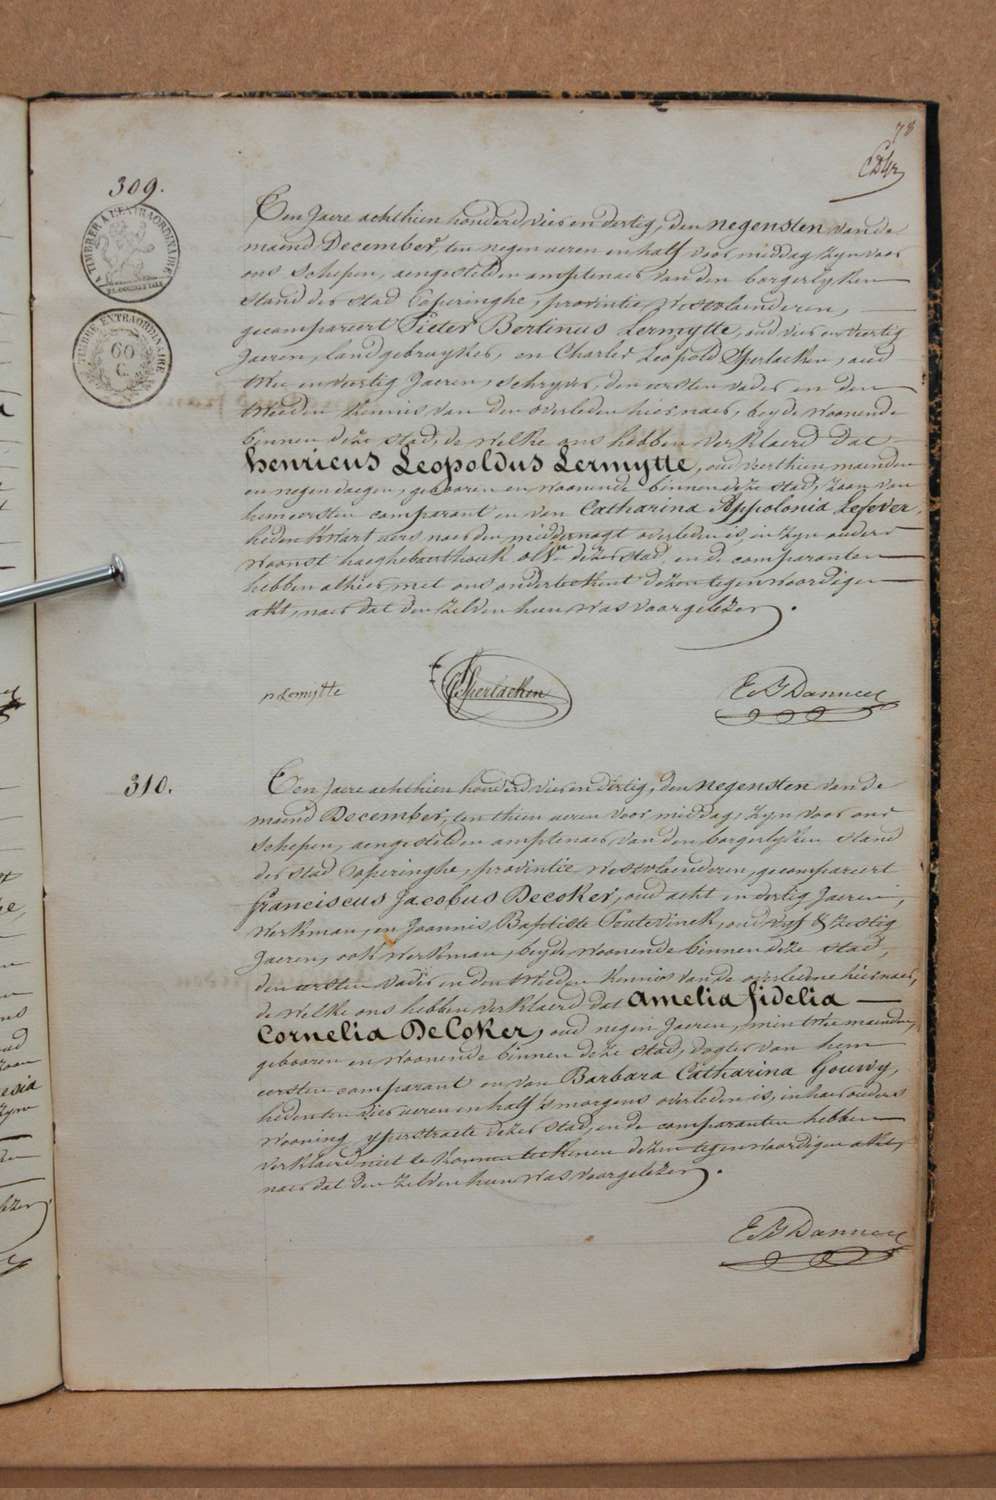 78
309.
TIMBRER A L'EXTRAORDINAIRE
TIMBRE EXTRAORDINAIRE
60
C.
Een Jaere achthien honderd vier en dertig, den negensten van de
maend December, ten negen ueren en half voor middag zyn voor
ons schepen, aengestelden amptenaer van den borgerlyken
stand der stad Poperinghe, provintie Westvlaenderen,
gecompareert Pieter Bertinus Lermytte, oud vier en veertig
Jaeren, landgebruyker, en Charles Leopold Yperlacken, oud
twee en veertig Jaeren, schryver, den eersten vader en den
tweeden kennis van den overleden hiernaer, beyde woonende
binnen deze stad, de welke ons hebben verklaerd dat
Henricus Leopoldus Lermytte, oud veerthien maenden
en negen daegen, gebooren en woonende binnen deze stad, zoon van
hem eersten comparant en van Catharina Appolonia Lefever,
heden kwart uers naer den middernagt overleden is, in zyn ouders
woonst haeghebaerthoek dezer stad en de comparanten
hebben alhier met ons onderteekent dezen tegenwoordigen
akt, naer dat den zelven hun was voorgelezen.
p Lermijtte
Yperlacken
E B Danneel
310.
Een Jaere achthien honderd vier en dertig, den negensten van de
maend December, ten thien ueren voor middag, zyn voor ons
schepen, aengestelden amptenaer van den borgerlyken stand
der stad Poperinghe, provintie Westvlaenderen, gecompareert
Franciscus Jacobus Decoker, oud acht en dertig Jaeren,
werkman, en Joannis Baptiste Toutevinck, oud vyf & zestig
Jaeren, ook werkman, beyde woonende binnen deze stad,
den eersten vader en den tweeden kennis van de overledene hiernaer,
de welke ons hebben verklaerd dat Amelia Fidelia
Cornelia DeCoker, oud negen Jaeren, min twee maenden,
gebooren en woonende binnen deze stad, dogter van hem
eersten comparant en van Barbara Catharina Gouwy,
heden ten vier ueren en half s'morgens overleden is, in haer ouders
wooning, yperstraete dezer stad, en de comparanten hebben
verklaerd niet te konnen teekenen dezen tegenwoordigen akt,
naer dat den zelven hun was voorgelezen.
E B Danneel